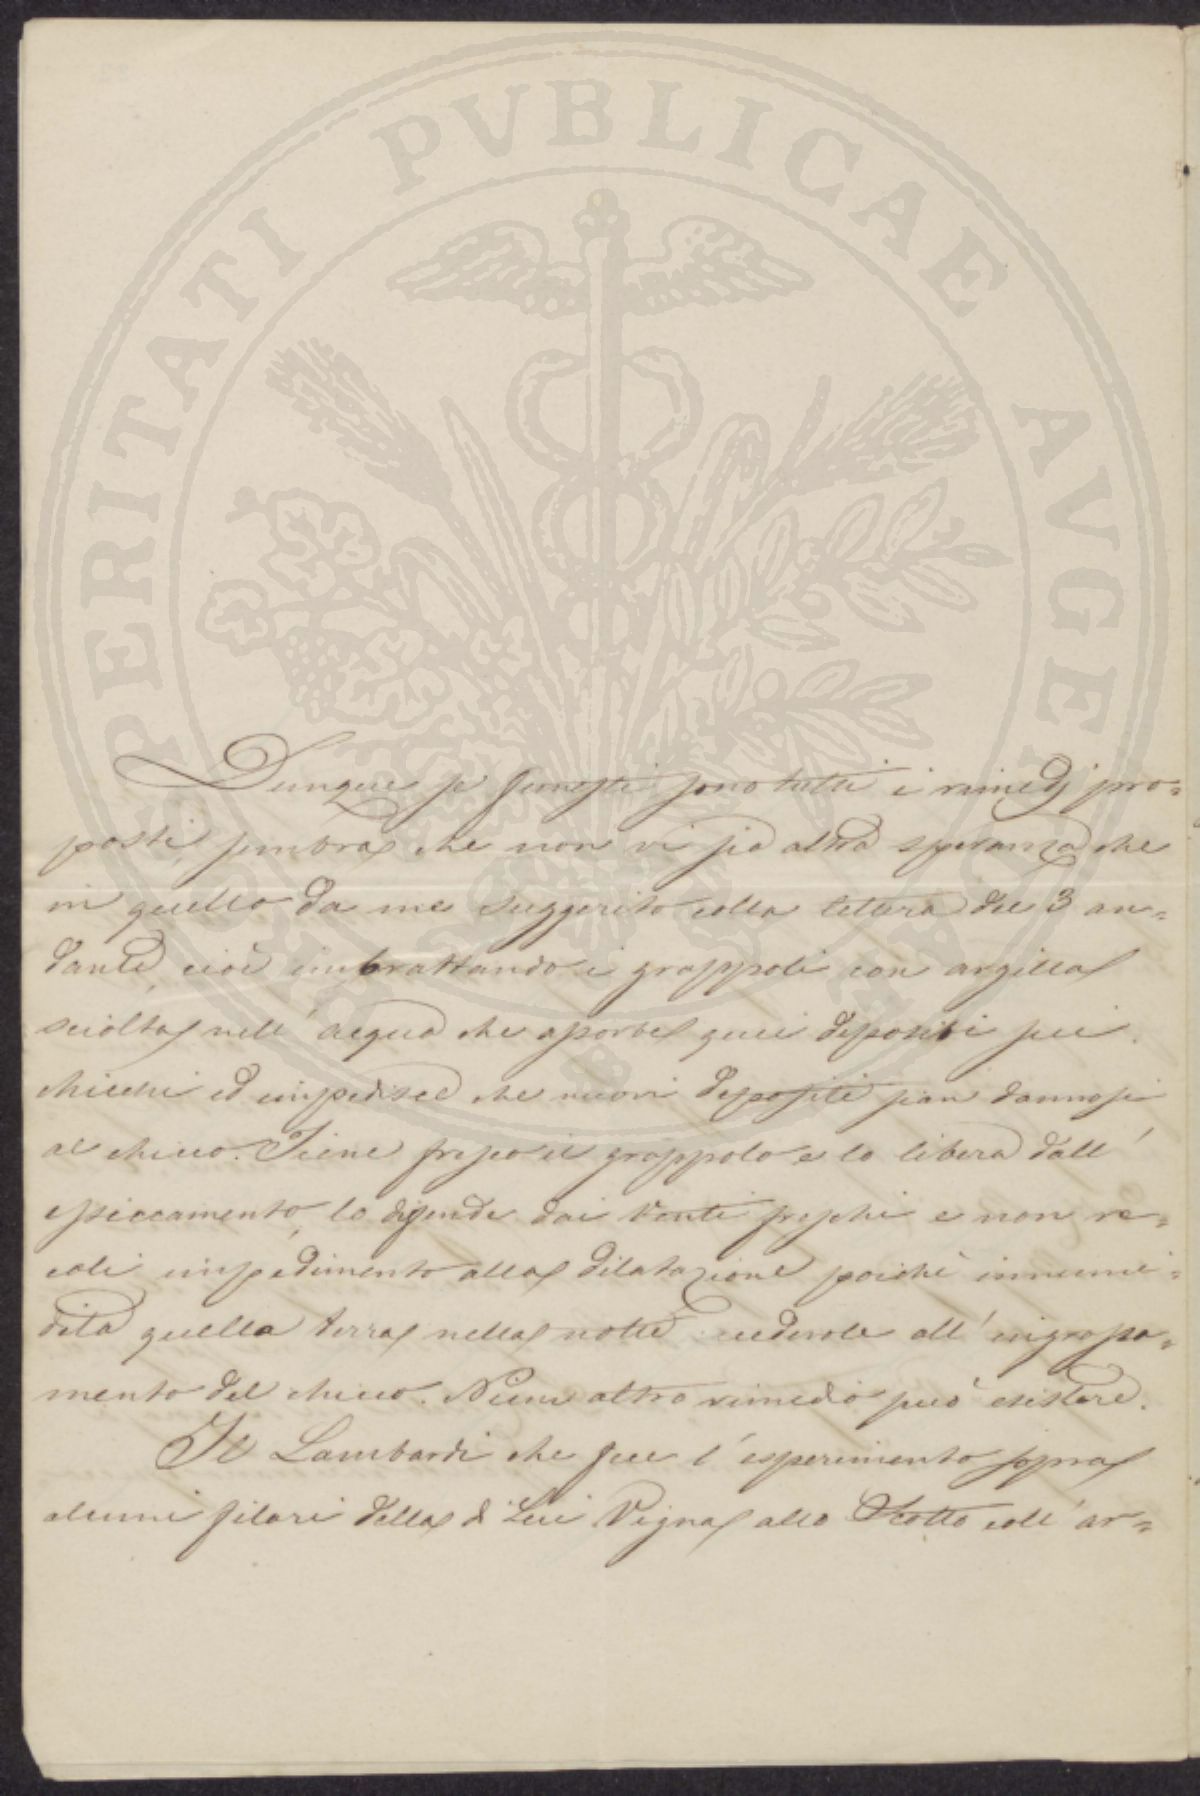 PROSPERITATI PVBLICAE AVGENDAE
Dunque se funesti sono tutti i rimedj pro=
posti sembra che non vi sia altra speranza che
in quello da me suggerito colla lettera del 3 an=
dante, cioè imbrattando i grappoli con argilla
sciolta nell' acqua che assorbe quei depositi sui
chicchi ed impedisce che nuovi depositi sian dannosi
al chicco. Tiene fresco il grappolo e lo libera dall'
essiccamento, lo difende dai venti freschi e non re=
ca impedimento alla dilatazione poichè innumi=
dita quella terra nella notte cederole all' ingrossa=
mento del chicco. Niun altro rimedio può esistere.
Il Lambardi che fece l' esperimento sopra
alcuni filari della di Lui Vigna allo coll' ar=